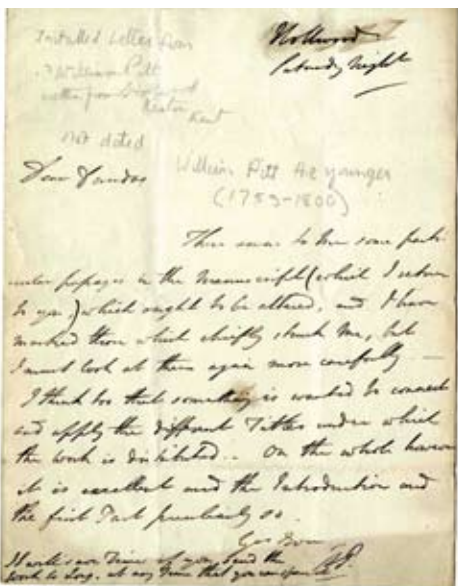 Initialled Letter from
William Pitt
written from Hollwood
Keston
Kent
not dated
Hollwood
Saturday Night
William Pitt the younger
(1759-1806)
Dear Dundas
There seems to me some parti-
cular passages in the Manuscript (which I return
to you) which ought to be altered, and I have
marked those which chiefly struck me, but
I must look at them again more carefully.
I think too that something is wanted to connect
and apply the different Titles under which
the work is distributed.. On the whole however
it is excellent and the Introduction and
the first Part peculiarly so.
Yrs Ever
W.P.
at any Time that you can spare